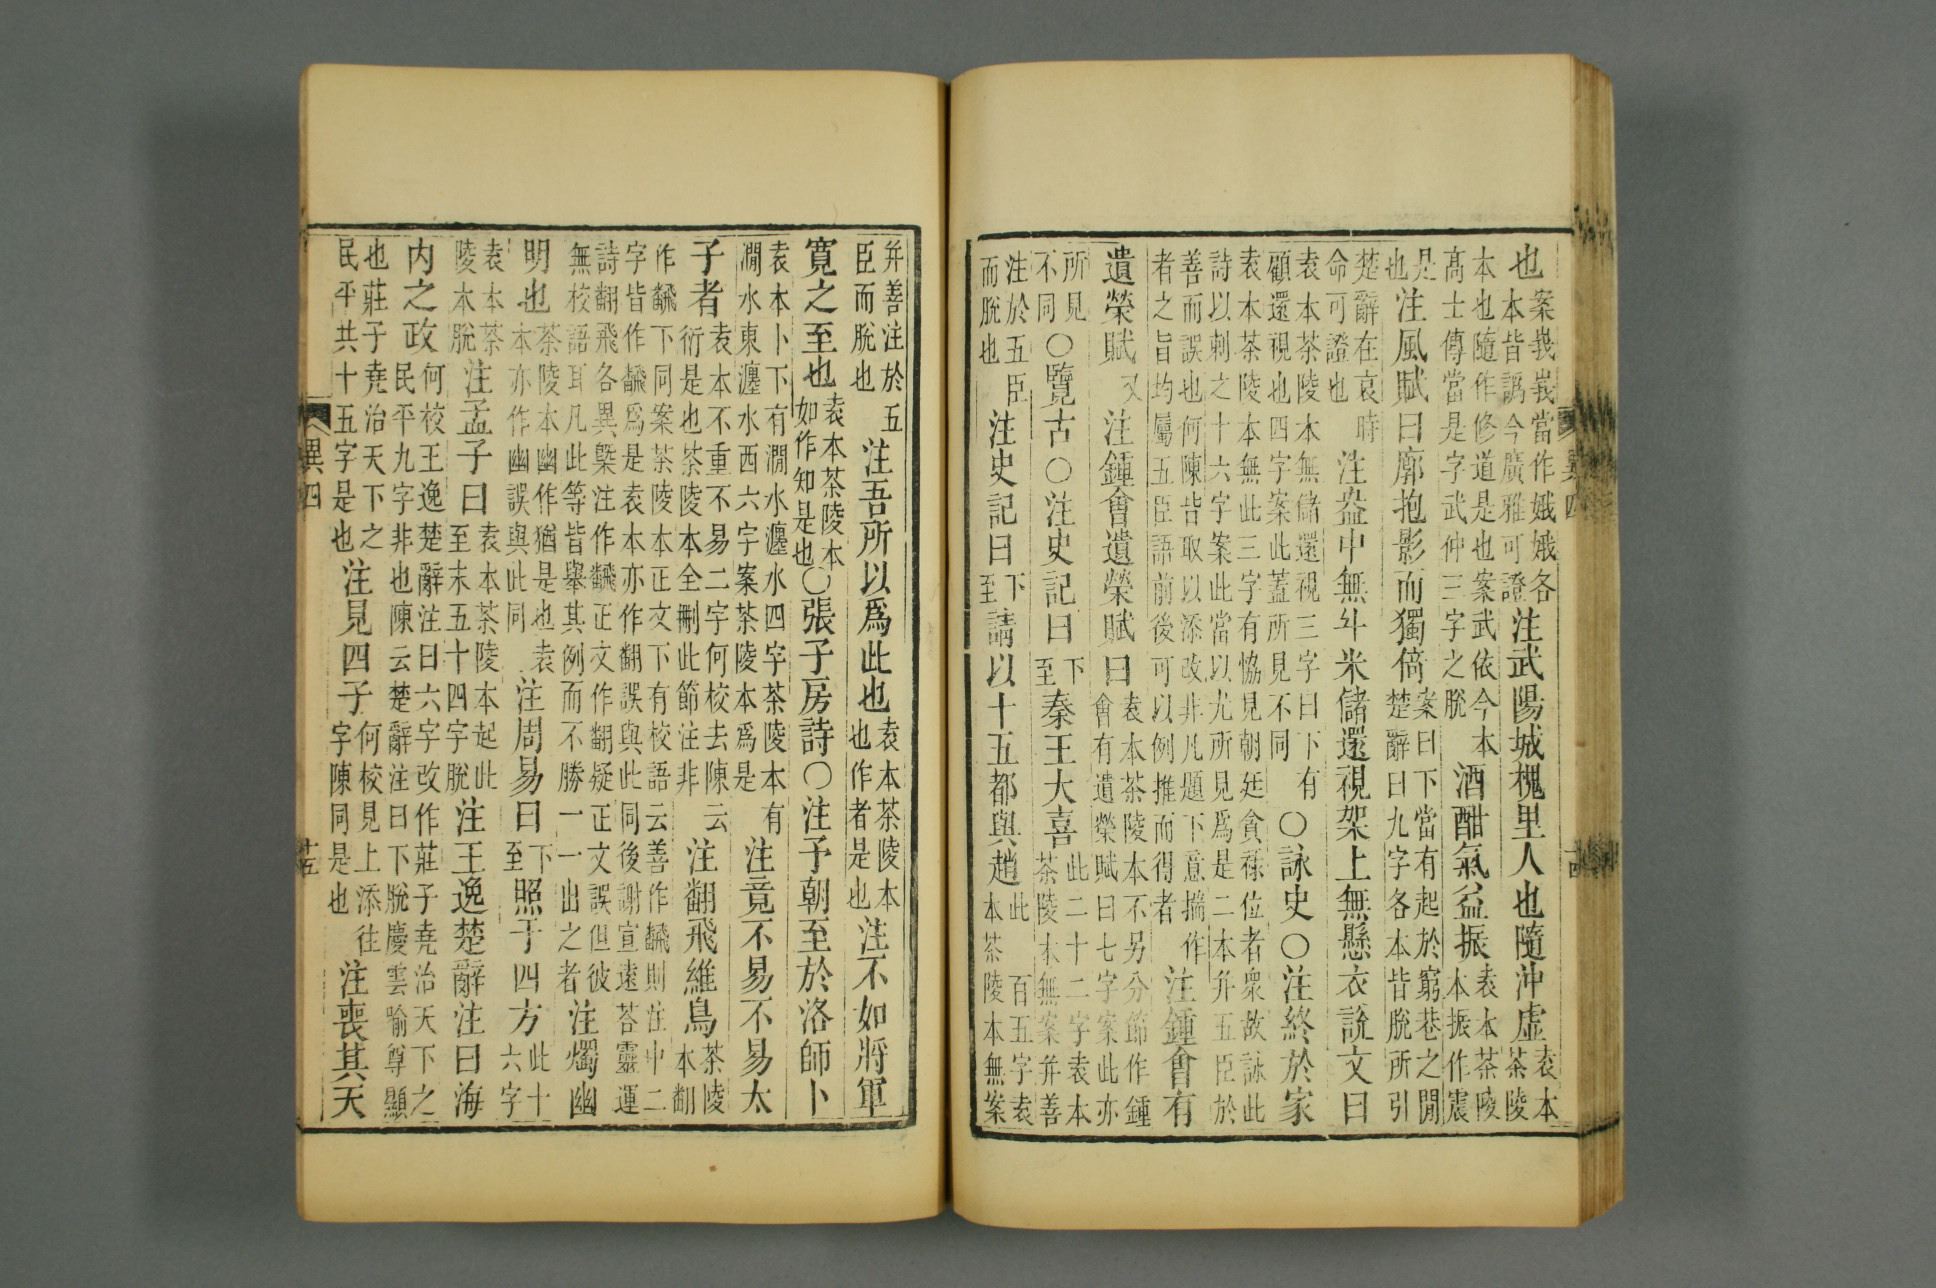 也案峩峩當作娥娥各本皆譌今廣雅可證注武陽城槐里人也隨沖虛袁本茶陵
本也隨作修道是也案武依今本高士傳當是字武仲三字之脫酒酣氣益振袁本茶陵本振作震
是也注風賦曰廓抱影而獨倚案曰下當有起於窮巷之閒楚辭曰九字各本皆脫所引
楚辭在哀時命可證也注盎中無斗米儲還視架上無懸衣說文曰
袁本茶陵本無儲還視三字曰下有顧還視也四字案此蓋所見不同○詠史○注終於家
袁本茶陵本無此三字有恊見朝廷貪祿位者衆故詠此詩以刺之十六字案此當以尤所見爲是二本幷五臣於
善而誤也何陳皆取以添改非凡題下意揣作者之旨均屬五臣語前後可以例推而得者注鍾會有
遺榮賦又注鍾會遺榮賦曰袁本茶陵本不另分節作鍾會有遺榮賦曰七字案此亦
所見不同○覽古○注史記曰下至秦王大喜此二十二字袁本茶陵本無案幷善
注於五臣而脫也注史記曰下至請以十五都與趙此百五字袁本茶陵本無案
異四
十四
幷善注於五臣而脫也注吾所以爲此也袁本茶陵本也作者是也注不如將軍
寬之至也袁本茶陵本如作知是也○張子房詩○注予朝至於洛師卜
袁本卜下有澗水瀍水四字茶陵本有澗水東瀍水西六字案茶陵本爲是注竟不易不易太
子者袁本不重不易二字何校去陳云衍是也茶陵本全刪此節注非注翻飛維鳥茶陵本翻
作飜下同案茶陵本正文下有校語云善作飜則注中二字皆作飜爲是袁本亦作翻誤與此同後謝宣遠荅靈運
詩翻飛各異槩注作飜正文作翻疑正文誤但彼無校語耳凡此等皆舉其例而不勝一一出之者注燭幽
明也茶陵本幽作猶是也袁本亦作幽誤與此同注周易曰下至照于四方此十六字
袁本茶陵本脫注孟子曰袁本茶陵本起此至末五十四字脫注王逸楚辭注曰海
内之政何校王逸楚辭注曰六字改作莊子堯治天下之民平九字非也陳云楚辭注曰下脫慶雲喻尊顯
也莊子堯治天下之民平共十五字是也注見四子何校見上添往字陳同是也注喪其天
異四
十五